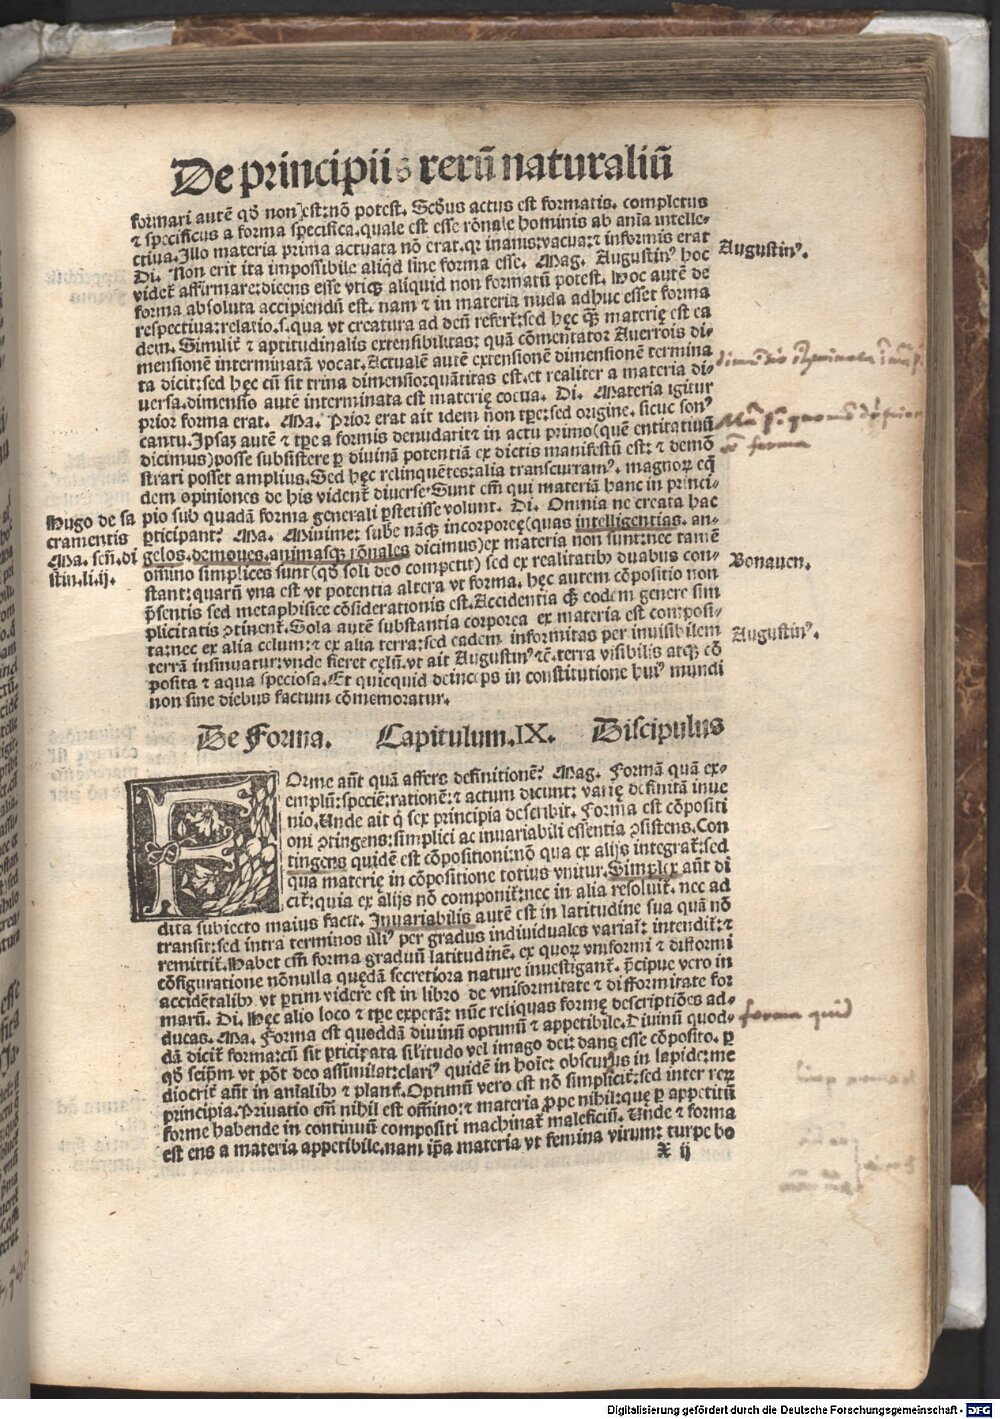 De principiis rerū naturaliū
formari autē qđ non est: nō potest. Scđus actus est formatis. completus
⁊ specificus a forma specifica. quale est esse rōnale hominis ab anīa intelle-
ctiua. Illo materia prima actuata nō erat. qr inanis: vacua: ⁊ informis erat
Di. Non erit ita impossibile aliqd sine forma esse. Mag. Augustinꝰ hoc
Augustinꝰ.
videt̄ affirmare: dicens esse vtiqꝫ aliquid non formatū potest. Hoc autē de
forma absoluta accipiendū est. nam ⁊ in materia nuda adhuc esset forma
respectiua: relatio. s. qua vt creatura ad deū refert̄: sed hęc qꝫ materię est ea
dem. Similit̄ ⁊ aptitudinalis extensibilitas: quā cōmentator Auerrois di-
mensionē interminatā vocat. Actualē autē extensionē dimensionē termina
ta dicit: sed hęc cū sit trina dimensio: quātitas est. et realiter a materia di-
uersa. dimensio autē interminata est materię coeua. Di. Materia igitur
prior forma erat. Ma. Prior erat ait idem nōn tpe: sed origine. sicut sonꝰ
cantu. Ipsaꝫ autē ⁊ tpe a formis denudari: ⁊ in actu primo (quē entitatiuū
dicimus) posse subsistere p̱ diuinā potentiā ex dictis manifestū est: ⁊ demō
strari posset amplius. Sed hęc relinquētes: alia transcurramꝰ. magnoꝝ eqͥ
dem opiniones de his vident̄ diuerse. Sunt em̄ qui materiā hanc in princi-
Hugo de sa
cramentis
Ma. sen̄. di
stin. li. ij.
pio sub quadā forma generali p̱stetisse volunt. Di. Omnia ne creata hac
p̱ticipant? Ma. Minime: sube nāqꝫ incorporeę (quas intelligentias. an-
gelos. demones. animasqꝫ rōnales dicimus) ex materia non sunt: nec tamē
om̄ino simplices sunt (qđ soli deo competit) sed ex realitatibꝰ duabus con-
Bonauen.
stant: quarū vna est vt potentia altera vt forma. hęc autem cōpositio non
p̄sentis sed metaphisice cōsiderationis est. Accidentia qꝫ eodem genere sim
plicitatis ꝯtinent̄. Sola autē substantia corporea ex materia est composi-
Augustinꝰ.
ta: nec ex alia celum: ⁊ ex alia terra: sed eadem informitas per inuisibilem
terrā insinuatur: vnde fieret cęlū. vt ait Augustinꝰ ⁊c̄. terra visibilis atqꝫ cō
posita ⁊ aqua speciosa. Et quicquid deinceps in constitutione huiꝰ mundi
non sine diebus factum cōmemoratur.
De Forma. Capitulum. IX. Discipulus
FOrme aūt quā affers definitionē? Mag. Formā quā ex-
emplū: speciē: rationē: ⁊ actum dicunt: varię definitā inue
nio. Unde ait q̱ sex principia describit. Forma est cōpositi
oni ꝯtingens: simplici ac inuariabili essentia ꝯsistens. Con
tingens quidē est cōpositioni: nō qua ex alijs integrat̄: sed
qua materię in cōpositione totius vnitur. Simplex aūt di
cit̄: quia ex alijs nō componit̄: nec in alia resoluit̄. nec ad
dita subiecto maius facit. Inuariabilis autē est in latitudine sua quā nō
transit: sed intra terminos illiꝰ per gradus indiuiduales variat̄: intendit̄: ⁊
remittit̄. Habet em̄ forma graduū latitudinē. ex quoꝝ vniformi ⁊ difformi
cōfiguratione nōnulla quędā secretiora nature inuestigant̄. p̄cipue vero in
accidētalibꝰ vt p̱tim videre est in libro de vniformitate ⁊ difformitate for
marū. Di. Hęc alio loco ⁊ tpe experā: nūc reliquas formę descriptiōes ad-
forma quid
ducas. Ma. Forma est quoddā diuinū optimū ⁊ appetibile. Diuinū quod-
dā dicit̄ forma: cū sit p̱ticipata similitudo vel imago dei: dans esse cōposito. p̱
qđ seip̄m vt pōt deo assimilat: clariꝰ quidē in hoīe: obscurius in lapide: me
diocrit̄ aūt in anīalibꝰ ⁊ plantꝭ. Optimū vero est nō simplicit̄: sed inter reꝝ
principia. Priuatio em̄ nihil est om̄ino: ⁊ materia p̱pe nihil: que p̱ appetitū
forme habende in continuū compositi machinat̄ maleficiū. Unde ⁊ forma
est ens a materia appetibile. nam ip̄a materia vt femina virum: turpe bo
X ij
Digitalisierung gefördert durch die Deutsche Forschungsgemeinschaft - DFG